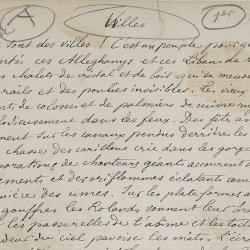 A Villes 1er
sont des villes ! C'est un peuple pour qu
ntés ces Alleghanys et ces Libans de r
s chalets de cristal et de bois qui se meuv
rails et des poulies invisibles. Les vieux
nts de colosses et de palmiers de cuivre r
lodieusement dans les feux. Des fêtes
nent sur les canaux pendus derrière les
chasse des carillons crie dans les gorge
porations de chanteurs géants accourent
ements et des oriflammes éclatants com
mière des cimes. Sur les plateformes a
gouffres les Rolands sonnent leur br
les passerelles de l'abîme et les toi
deur du ciel pavoise les mats. L'